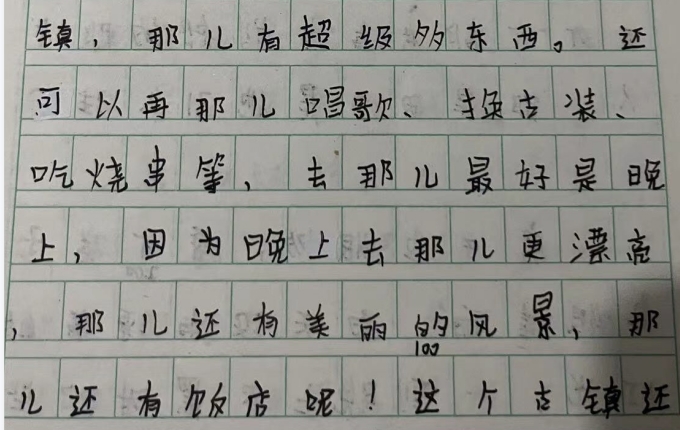 镇，那儿有超级多东西。还
可以再那儿唱歌、换古装、
吃烧串等，去那儿最好是晚
上，因为晚上去那儿更漂亮
，那儿还有美丽的风景，那
100
儿还有饭店呢！这个古镇还